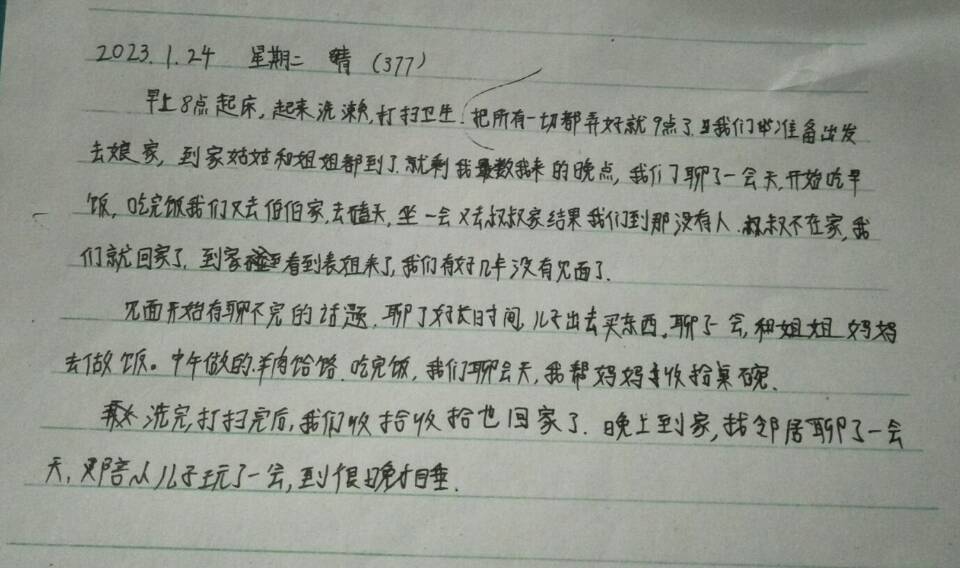 2023.1.24 星期二 晴（377）
早上8点起床，起来洗漱，打扫卫生.把所有一切都弄好就9点了.我们准备出发
去娘家，到家姑姑和姐姐都到了.就剩我最数我来的晚点，我们聊了一会天.开始吃早
饭，吃完饭我们又去伯伯家，去聊天，坐一会又去叔叔家结果我们到那没有人.叔叔不在家，我
们就回家了.到家看到表姐来了，我们有好几年没有见面了.
见面开始有聊不完的话题.聊了好长时间，儿子出去买东西，聊了一会，和姐姐妈妈
去做饭。中午做的羊肉饸饹.吃完饭，我们聊会天，我帮妈妈收拾桌碗.
洗完，打扫完后，我们收拾收拾也回家了.晚上到家，找邻居聊了一会
天，陪儿子玩了一会，到很晚才睡.